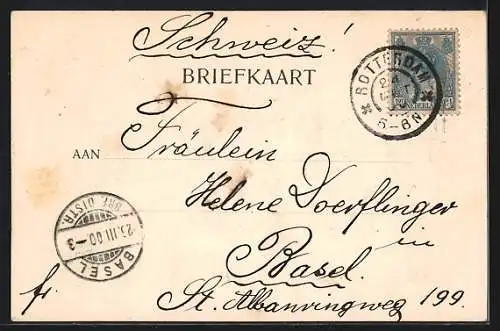 Schweiz!
BRIEFKAART
ROTTERDAM
6-8 N
AAN
Fräulein
Helene Doerflinger
in
Basel.
St. Albanringweg 199.
BRF. DISTR.
25.III.00-3
BASEL
fr.